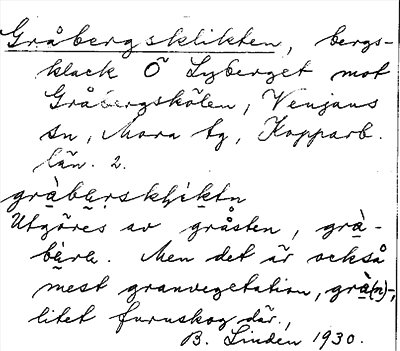 Gråbergsklikten, bergs-
klack Ö Lyberget mot
Gråbergskölen, Venjans
sn, Mora tg, Kopparb.
län. 2.
gràbärskliktn
Utgöres av gråsten, grà-
bàra. Men det är också
mest granvegetation, grà(n)-,
litet furuskog där.,
B. Linden 1930.